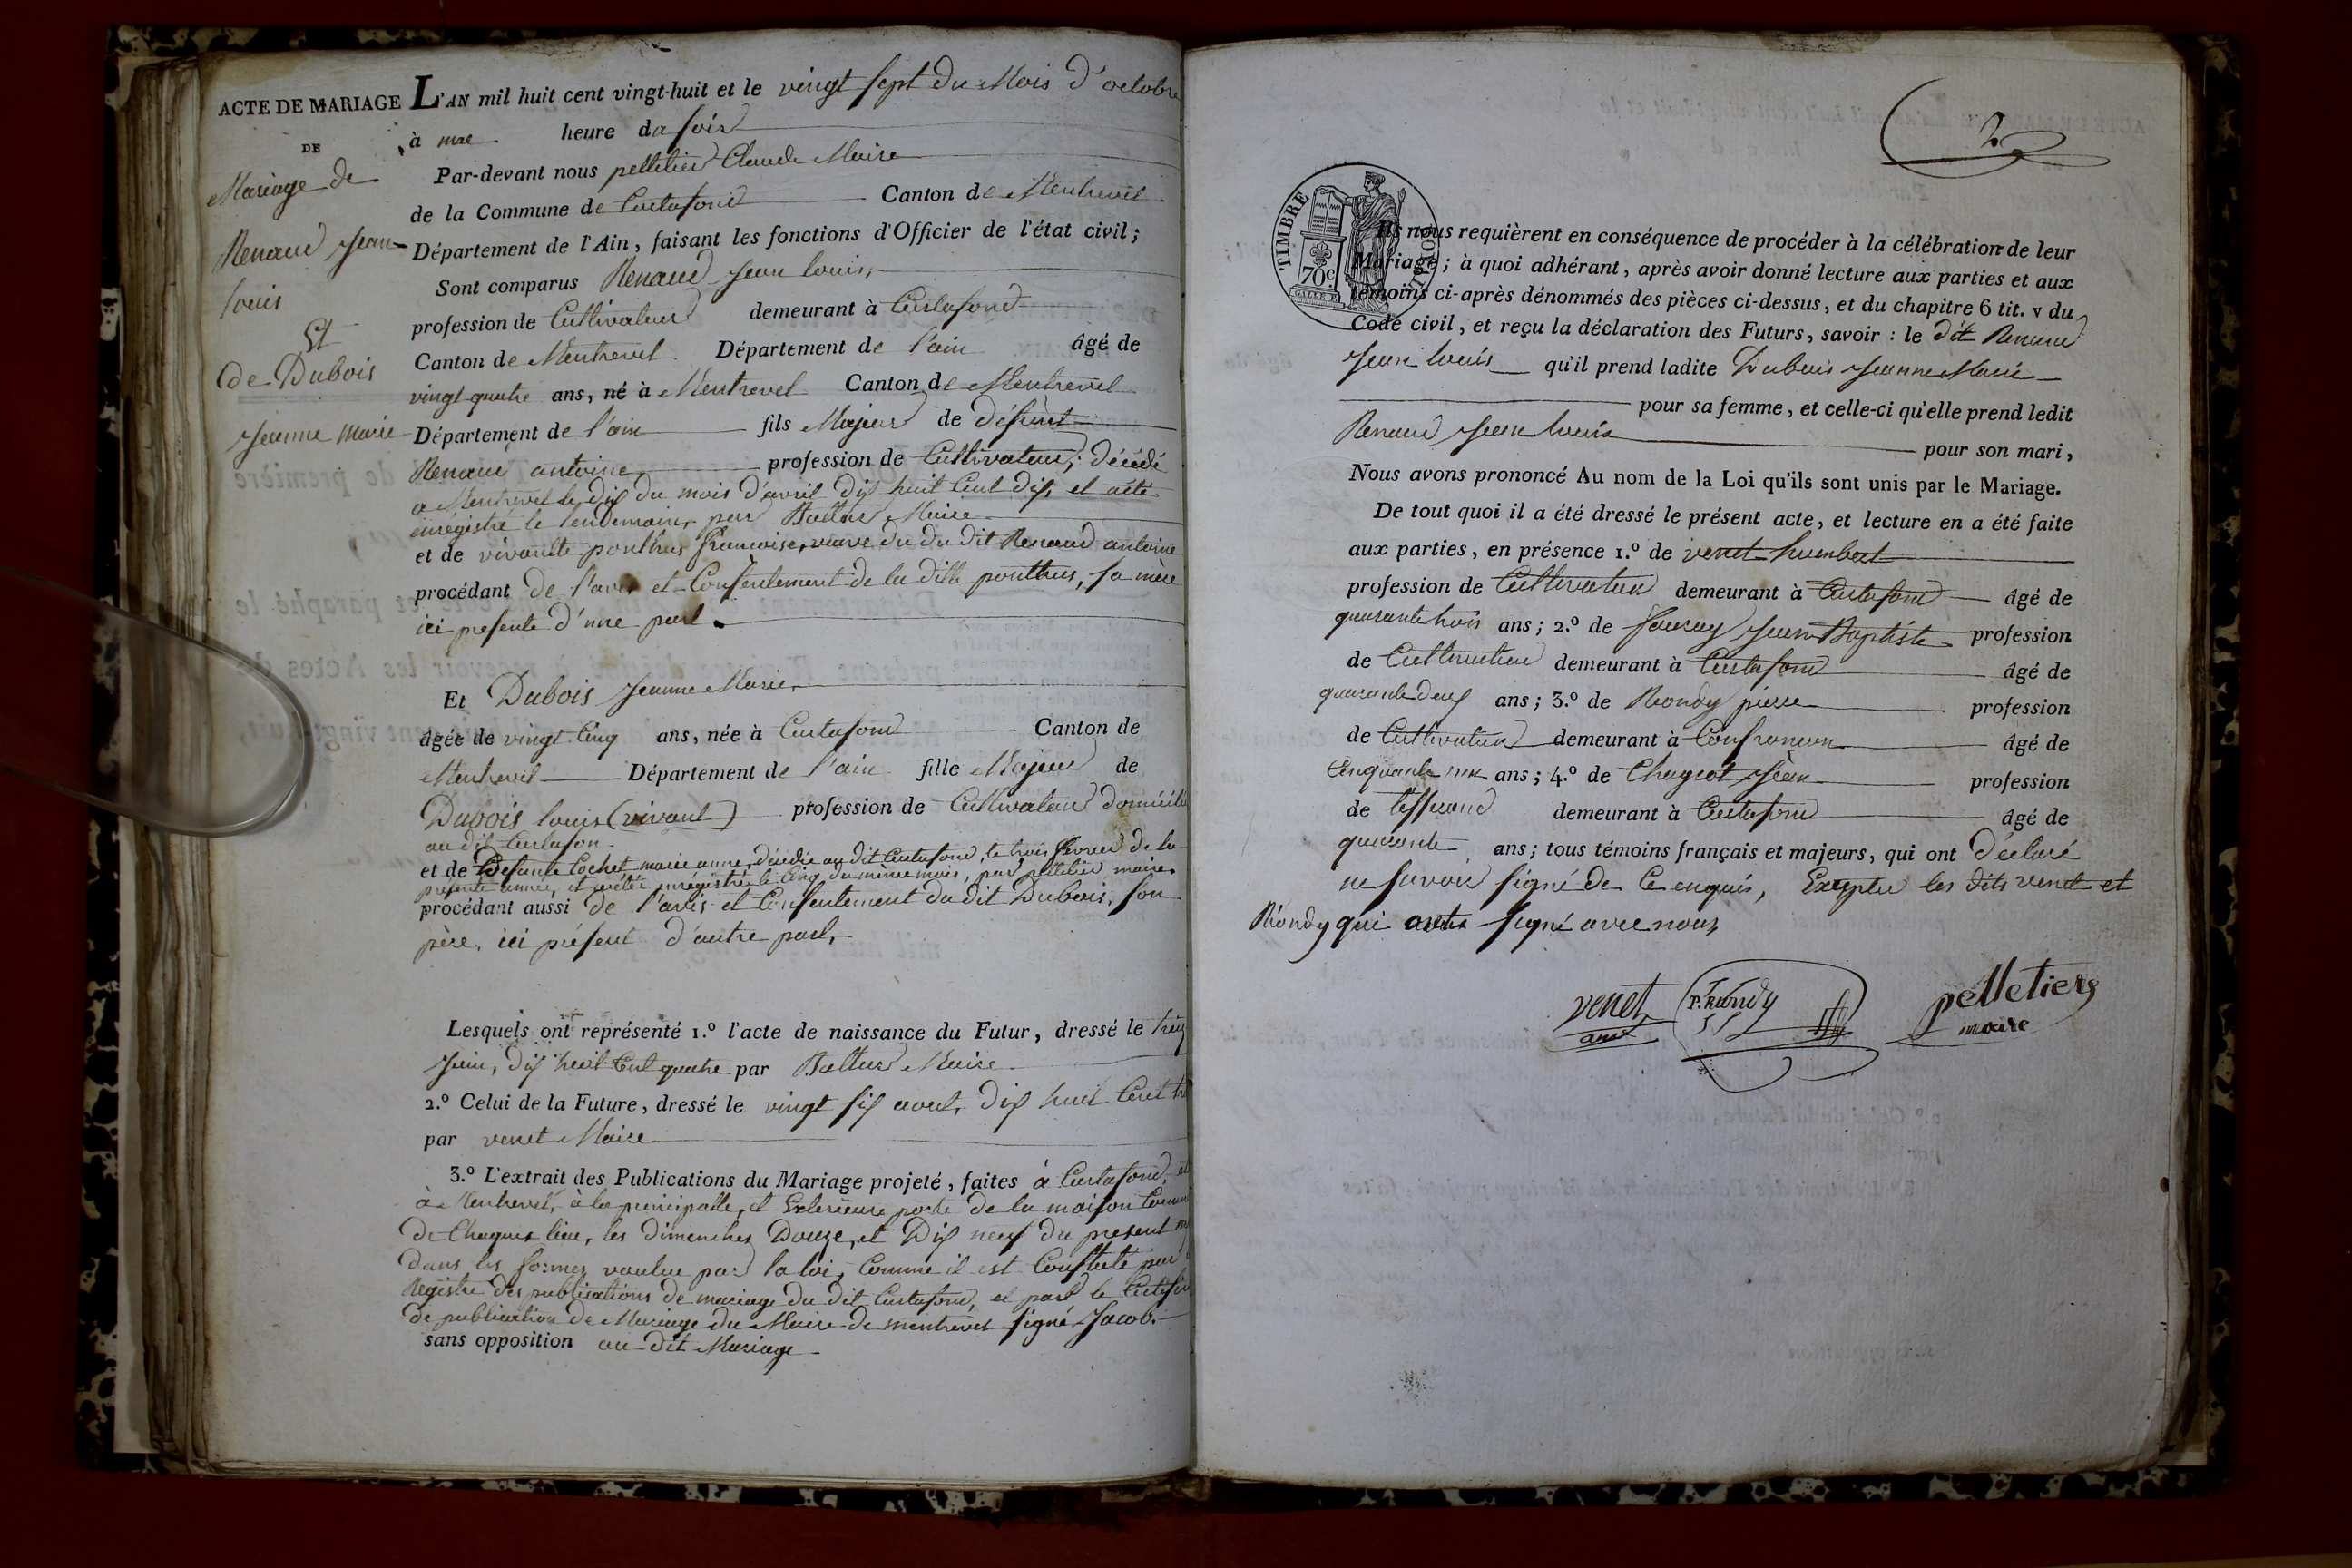 ACTE DE MARIAGE
DE
Mariage de
Renaud Jean
louis
Et
de Dubois
Jeanne marie
L'AN mil huit cent vingt-huit et le vingt sept du Mois d'octobre
à une heure du soir
Par-devant nous pelletier Claude Maire
de la Commune de Curtafond Canton de Montrevel
Département de l'Ain, faisant les fonctions d'Officier de l'état civil;
Sont comparus Renaud Jean louis,
profession de Cultivateur demeurant à Curtafond
Canton de Montrevel Département de l'ain âgé de
vingt quatre ans, né à Montrevel Canton de Montrevel
Département de l'ain fils Majeur de défunt
Renaud antoine, profession de Cultivateur, décédé
a Montrevel le dix du mois d'avril dix huit Cent dix, et aété
enrégistré le lendemain, par Maire
et de vivante ponthus francoise, veuve du du dit Renaud antoine
procédant de l'avis et Consentement de la ditte ponthus, sa mère
ici presente d'une part.
Et Dubois Jeanne Marie,
âgée de vingt Cinq ans, née à Curtafond Canton de
Montrevel Département de l'ain fille Majeur de
Dubois louis (vivant) profession de Cultivateur domicilié
au dit Curtafon
et de Defunte Cochet marie anne, décédée au dit Curtafond, le trois fevrier de la
presente année, et aété enrégistrée le Cinq du même mois, par pelletier maire,
procédant aussi de l'avis et Consentement du dit Dubois, son
père, ici présent d'autre part,
Lesquels ont représenté 1.º l'acte de naissance du Futur, dressé le
Juin, dix huit Cent quatre par Maire
2.º Celui de la Future, dressé le vingt six aout, dix huit Cent
par venet Maire
3.º L'extrait des Publications du Mariage projeté, faites à Curtafond, et
à Montrevel, à la principalle, et Exterieure porte de la maison
de Chaques lieu, les dimenches Douze, et Dix neuf du present
dans les formes voulue par la loi, Comme il est Constaté par
Registre des publications de mariage du dit Curtafond, et par le
de publication de Mariage du Maire de montrevel signé Jacob.
sans opposition au dit Mariage
2
TIMBRE ROYAL
70c.
Ils nous requièrent en conséquence de procéder à la célébration de leur
Mariage; à quoi adhérant, après avoir donné lecture aux parties et aux
témoins ci-après dénommés des pièces ci-dessus, et du chapitre 6 tit. v du
Code civil, et reçu la déclaration des Futurs, savoir: le dit Renaud
Jean louis qu'il prend ladite Dubois Jeanne Marie
pour sa femme, et celle-ci qu'elle prend ledit
Renaud Jean louis pour son mari,
Nous avons prononcé Au nom de la Loi qu'ils sont unis par le Mariage.
De tout quoi il a été dressé le présent acte, et lecture en a été faite
aux parties, en présence 1.º de venet humbert
profession de Cultivateur demeurant à Curtafond âgé de
quarante trois ans; 2.º de Jean Baptiste profession
de Cultivateur demeurant à Curtafond âgé de
quarante deux ans; 3.º de Rondy pierre profession
de Cultivateur demeurant à Confrancon âgé de
Cinquante ans; 4.º de Chagrot Jean profession
de tisserand demeurant à Curtafond âgé de
quarante ans; tous témoins français et majeurs, qui ont déclaré
ne savoir signé de Ce enquis, Excepter les dits venet et
Rondy qui signé avec nous
venet P. Rondy pelletier
maire